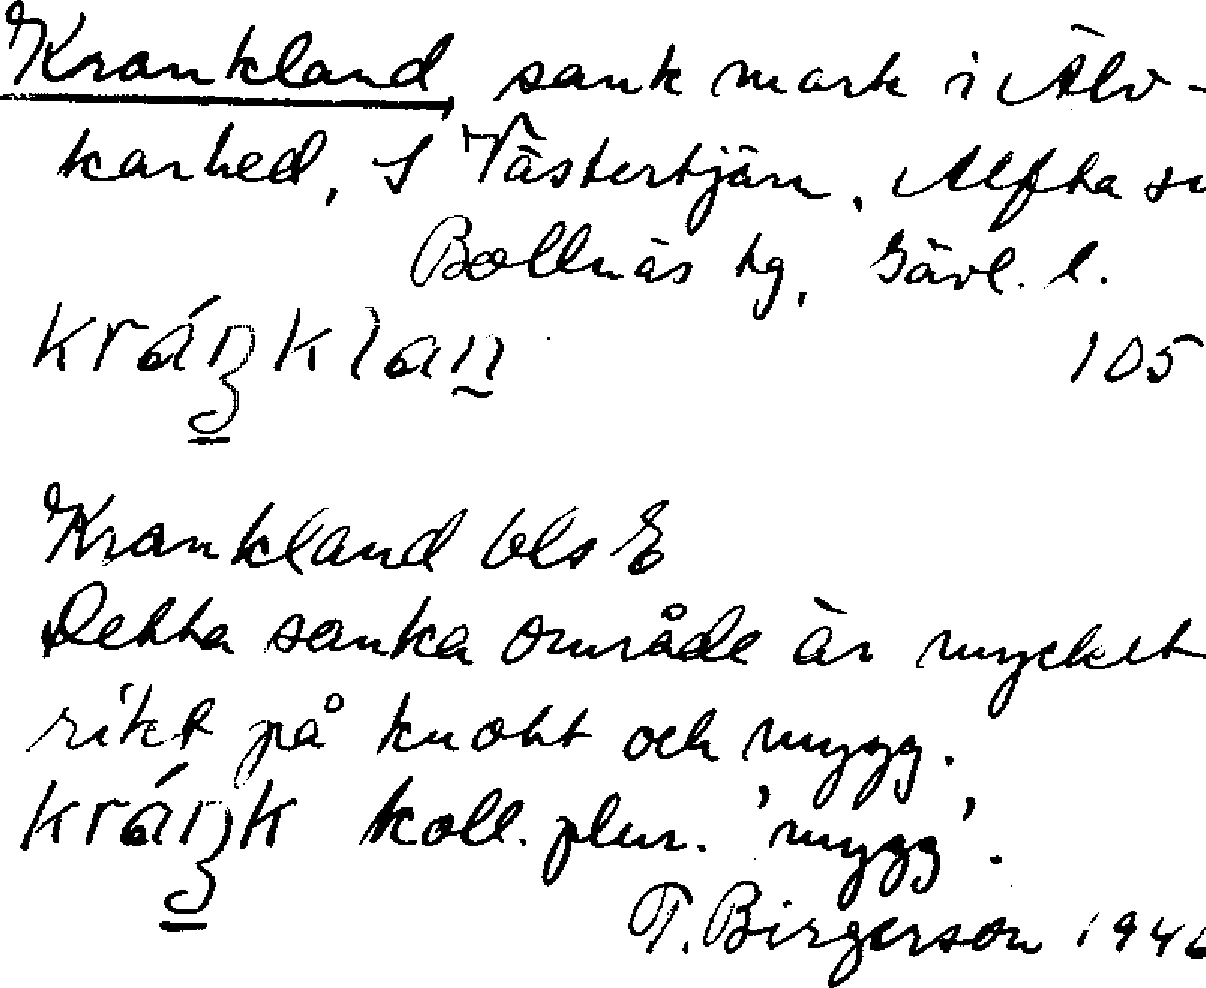 Krankland, sank mark i Älv-
karhed, S Västertjärn, Alfta sn
Bollnäs tg, Gävl. l.
kráŋklan 105
Krankland bls E
Detta sanka område är mycket
rikt på knott och mygg.
kráŋk koll. plur. 'mygg'.
T. Birgerson 1946